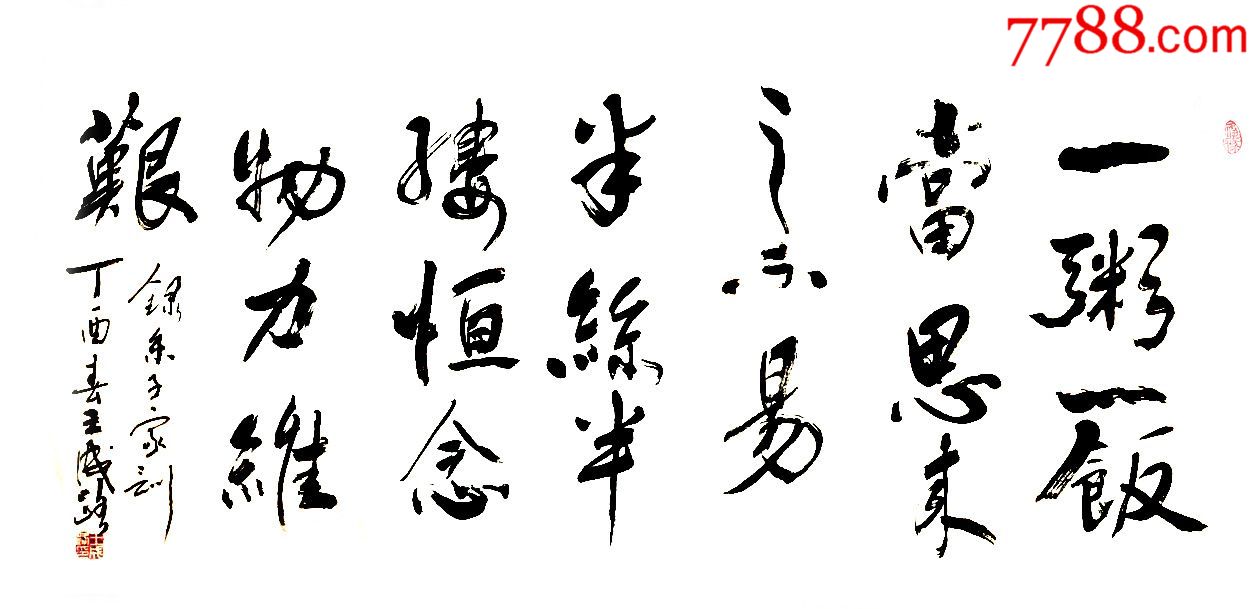 7788.com
一粥一飯
當思来
之不易
半絲半
縷恒念
物力維
艱
録朱子家訓
丁酉春王